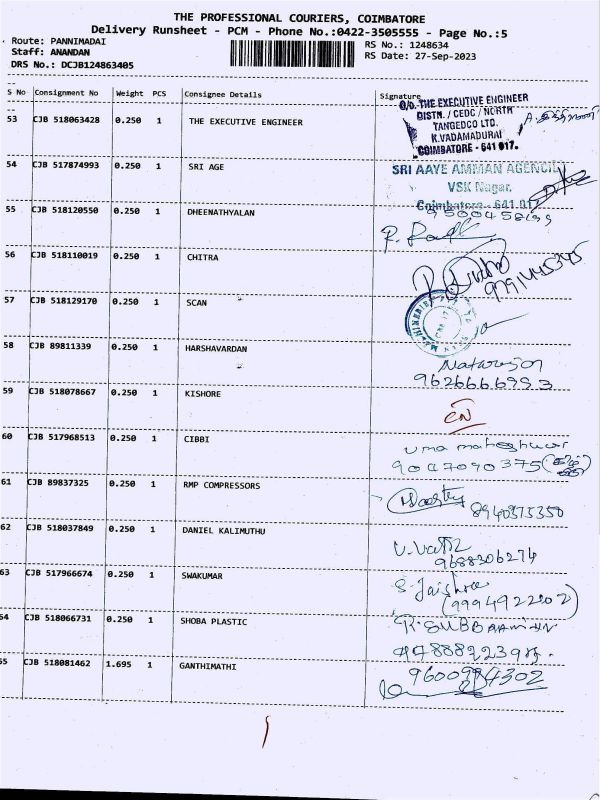 THE PROFESSIONAL COURIERS, COIMBATORE
Delivery Runsheet - PCM - Phone No.:0422-3505555 - Page No.:5
Route: PANNIMADAI
RS No.: 1248634
Staff: ANANDAN
RS Date: 27-Sep-2023
DRS No.: DCJB124863405
S No Consignment No Weight PCS Consignee Details Signature
O/o. THE EXECUTIVE ENGINEER
DISTN. / CEDC / NORTH
TANGEDCO LTD.
K.VADAMADURAI
COIMBATORE - 641 017.
53 CJB 518063428 0.250 1 THE EXECUTIVE ENGINEER
54 CJB 517874993 0.250 1 SRI AGE
SRI AAYE AMMAN AGENCIL
VSK Nagar,
Coimbatore - 641 017
55 CJB 518120550 0.250 1 DHEENATHYALAN
56 CJB 518110019 0.250 1 CHITRA
9791445395
57 CJB 518129170 0.250 1 SCAN
58 CJB 89811339 0.250 1 HARSHAVARDAN
Natarajan
9626666953
59 CJB 518078667 0.250 1 KISHORE
60 CJB 517968513 0.250 1 CIBBI
uma maheshwar
9047090375
61 CJB 89837325 0.250 1 RMP COMPRESSORS
8940975350
62 CJB 518037849 0.250 1 DANIEL KALIMUTHU
9688306274
63 CJB 517966674 0.250 1 SWAKUMAR
S. Jaishree
(9994922202)
64 CJB 518066731 0.250 1 SHOBA PLASTIC
R. SUBBRAMIAN
65 CJB 518081462 1.695 1 GANTHIMATHI
9600994302